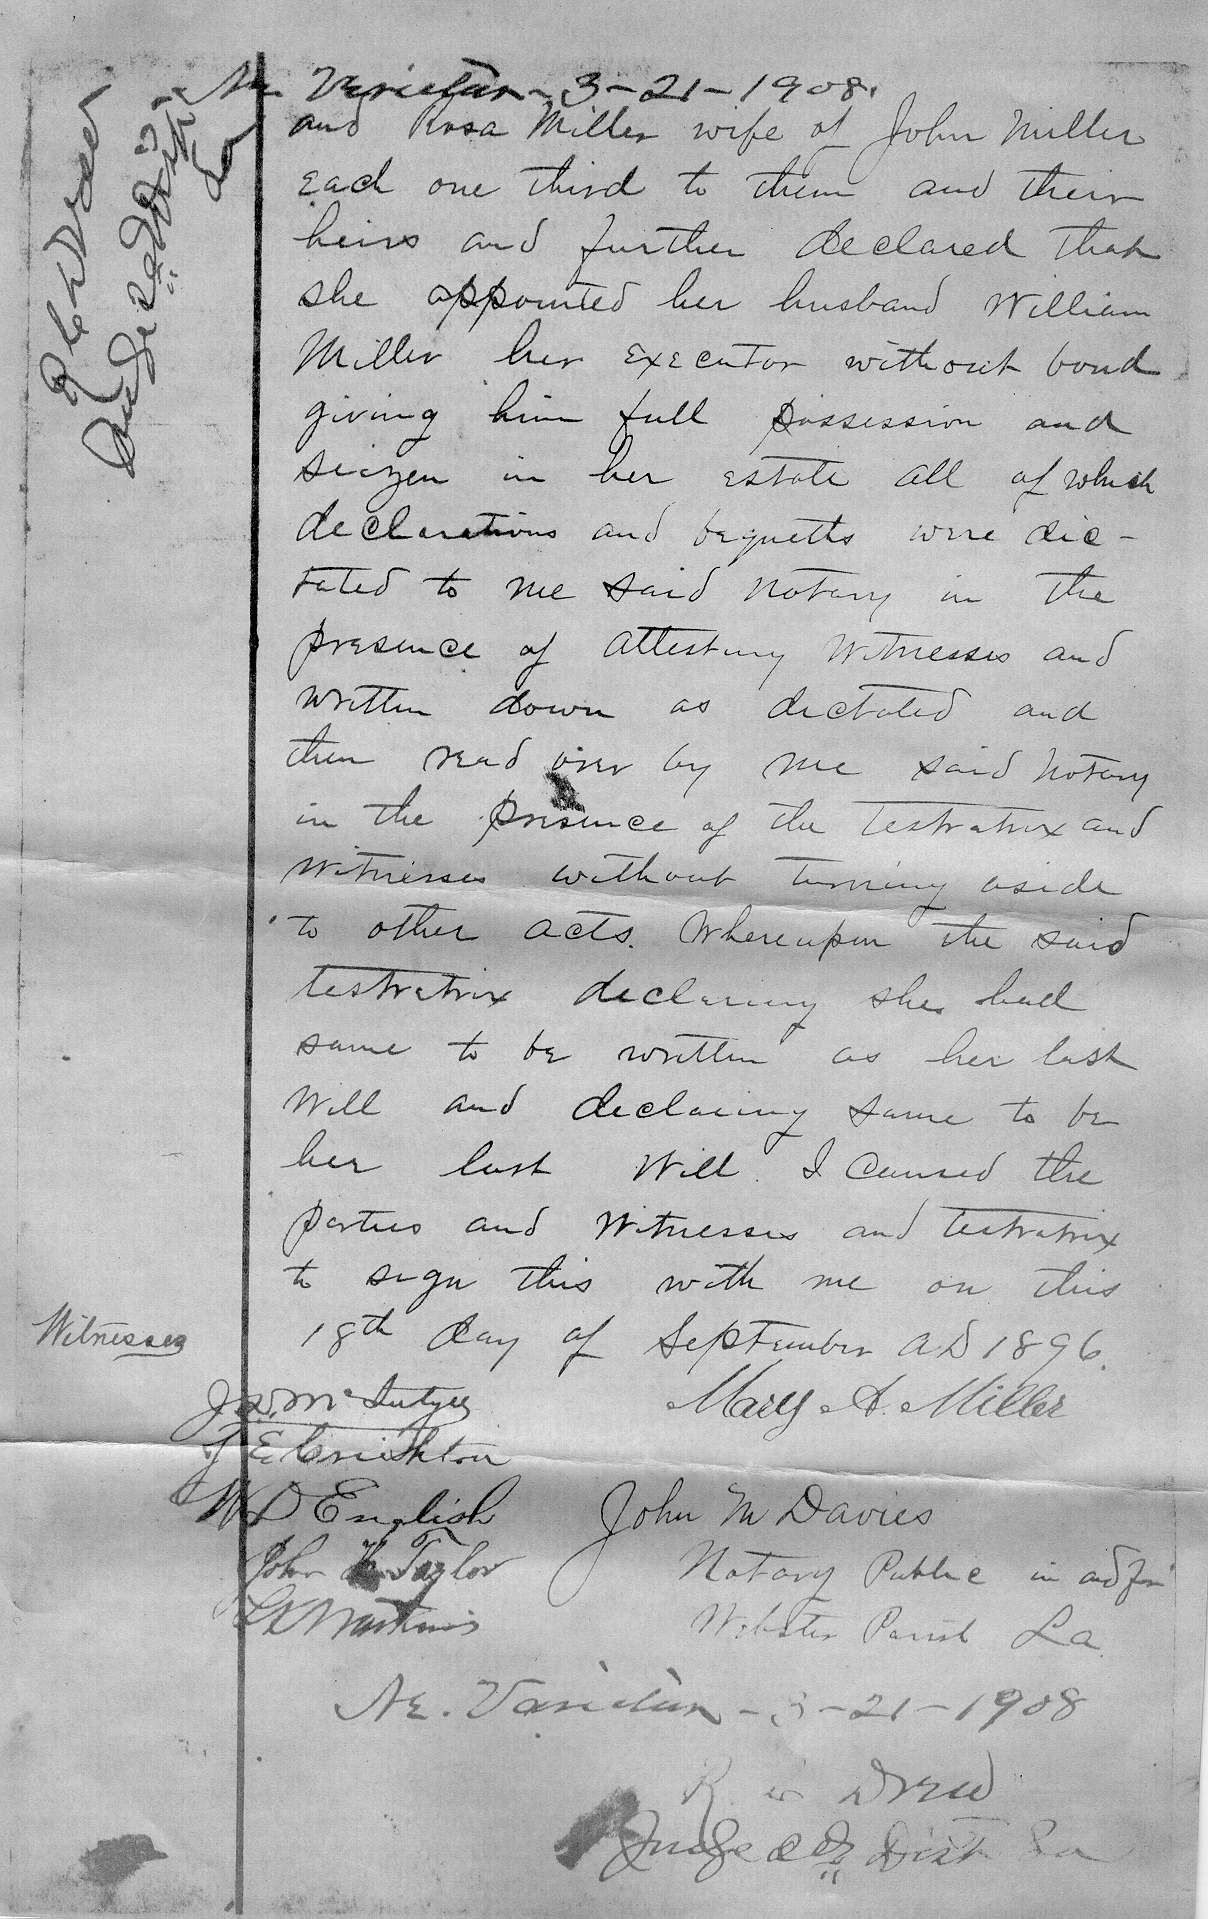 Ne Varietur - 3-21-1908.
and Rosa Miller wife of John Miller
Each one third to them and their
heirs and further declared that
she appointed her husband William
Miller her Executor without bond
giving him full possession and
seizen in her Estate all of which
declarations and bequetts were dic-
tated to me said Notary in the
presence of attesting Witnesses and
written down as dictated and
then read over by me said Notary
in the presence of the Testratrix and
Witnesses without turning aside
to other acts. Whereupon the said
testratrix declaring she had
same to be written as her last
Will and declaring same to be
her last Will. I caused the
parties and Witnesses and testratrix
to sign this with me on this
18th day of September AD 1896.
Witnesses
Mary A. Miller
J.W. McIntyre
T E Crichton
W D English
John Taylor
Watkins
John M Davies
Notary Public in and for
Webster Parish La
Ne. Varietur - 3-21-1908
R Drew
Judge Dist La
Drew
Judge Dist
La